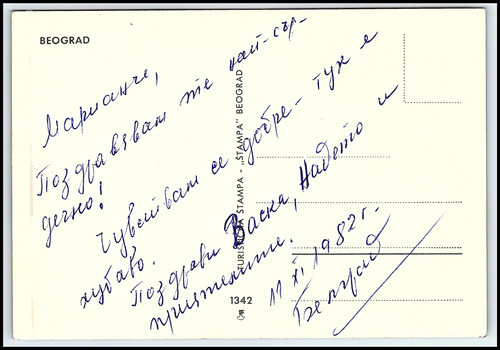 BEOGRAD
Марианче,
Поздравявам те най-сър-
дечно!
Чувствам се добре - тук е
хубаво.
Поздрави Васка, Надето и
приятелите.
11 XI 1982 г.
Белград
TURISTIČKA ŠTAMPA - „ŠTAMPA" BEOGRAD
1342